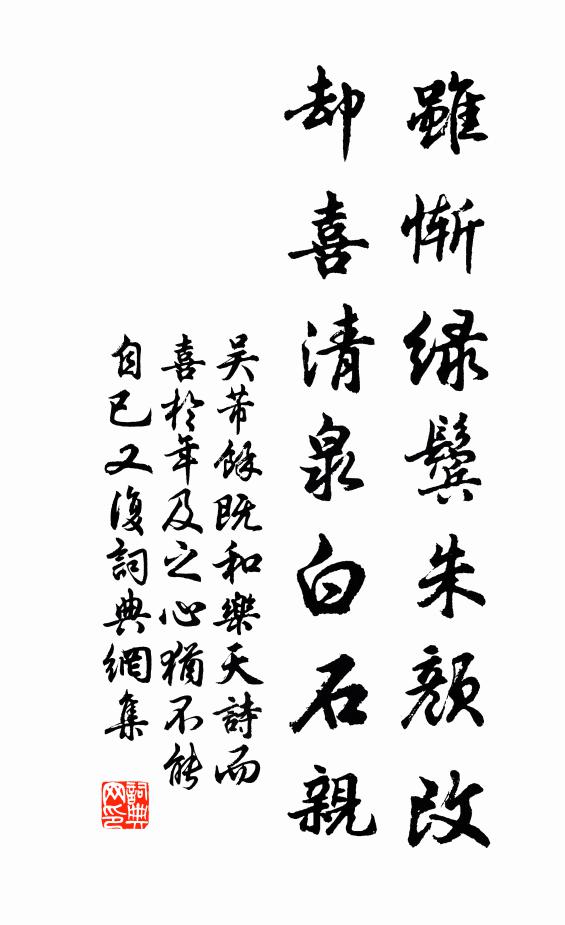 雖慚緑鬢朱顔改
却喜清泉白石親
吴芾餘既和樂天詩而
喜於年及之心猶不能
自已又復詞典網集
詞典
网印